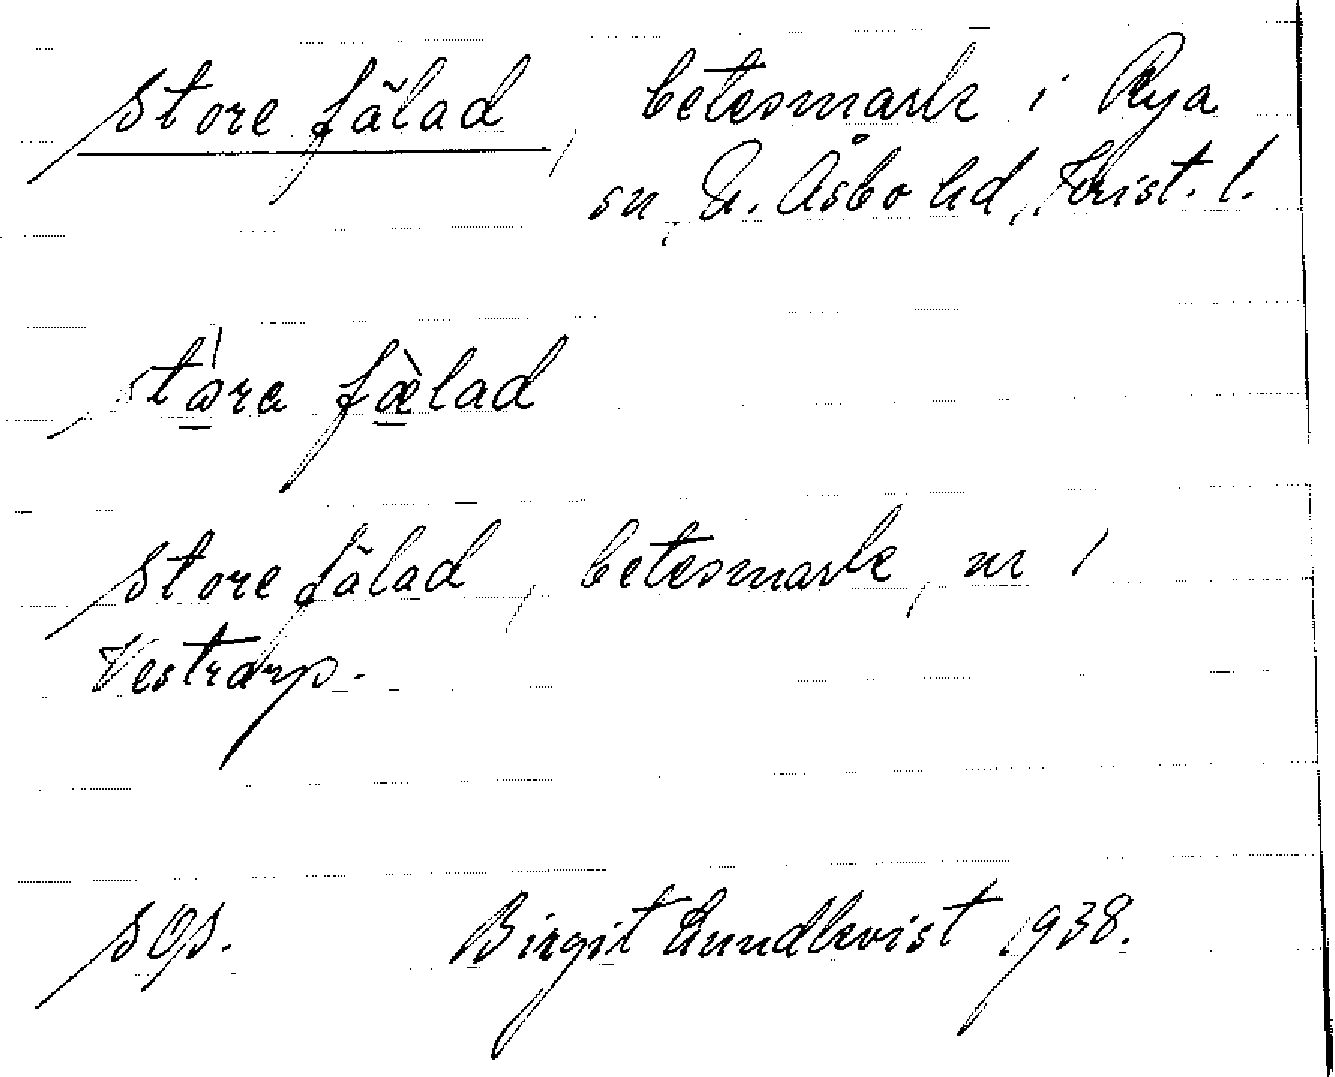 Store fälad, betesmark i Rya
sn, N. Åsbo hd, Krist. l.
fæ̀lad
Store fälad, betesmark, nr 1
Vestrarp.
Birgit Lundkvist 1938.